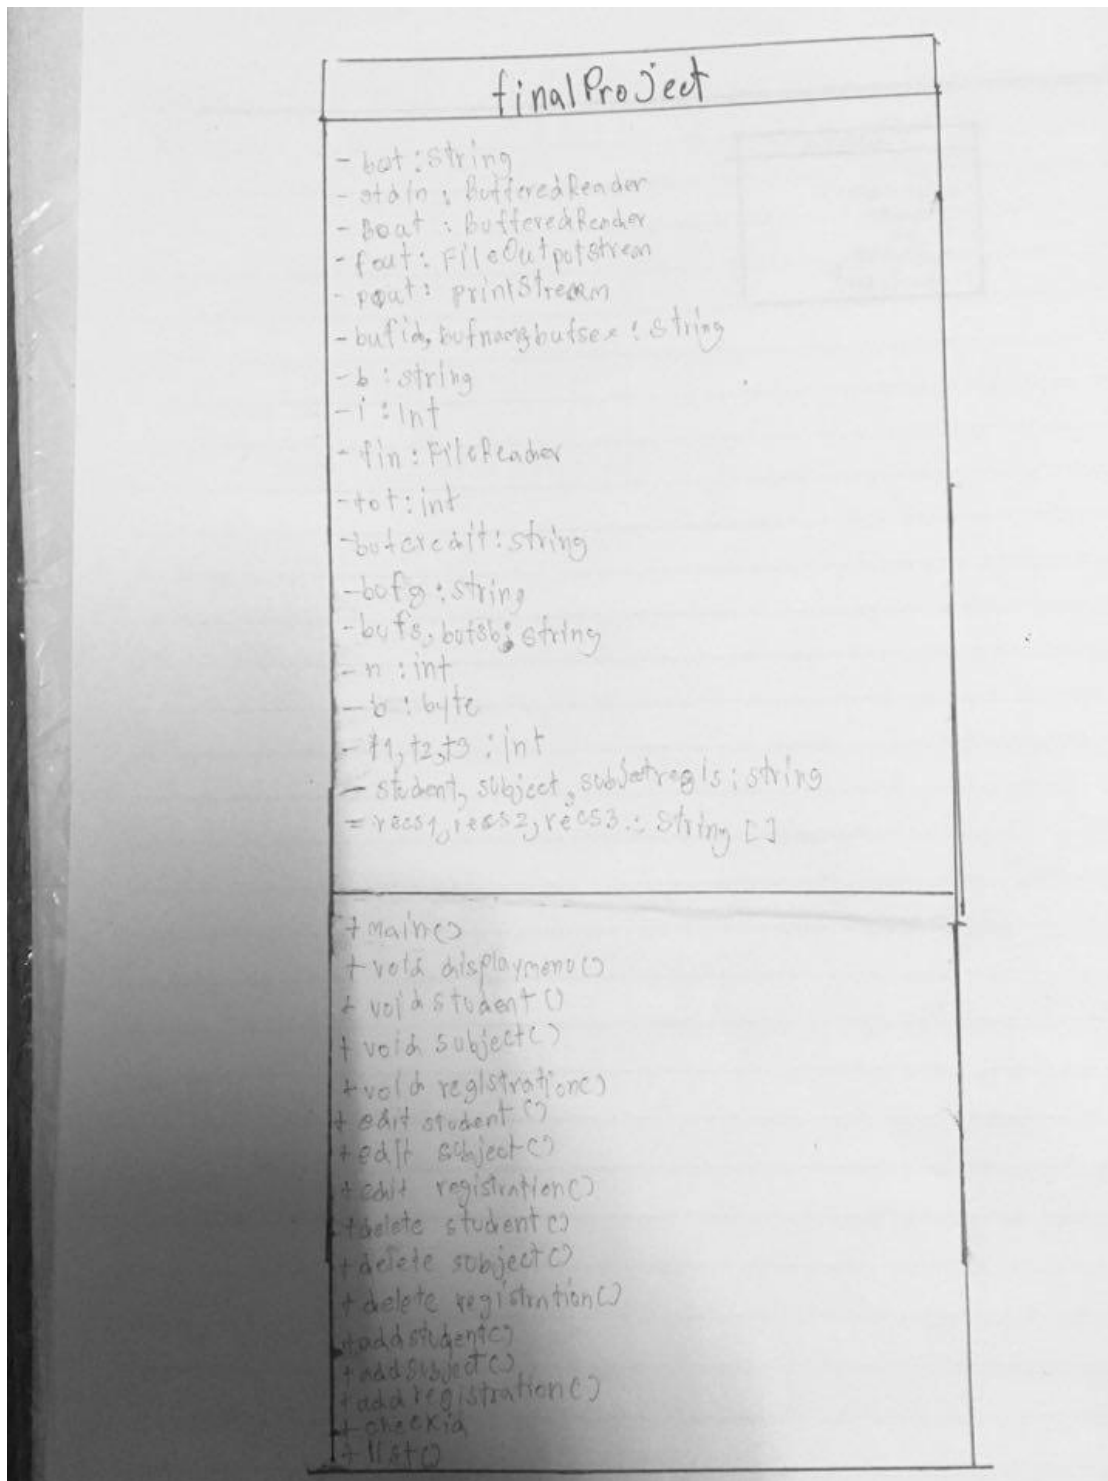 finalProJect
- buf : String
- stdin : BufferedReader
- Bout : BufferedReader
- fout : FileOutputStream
- pout : printStream
- bufid, bufname, bufsex : String
- b : string
- i : int
- fin : FileReader
- tot : int
- bufcredit : string
- bufg : string
- bufs, bufsbj : string
- n : int
- b : byte
- t1, t2, t3 : int
- student, subject, subjectregis : string
- recs1, recs2, recs3 : String []
+ main()
+ void displaymenu()
+ void student()
+ void subject()
+ void registration()
+ edit student()
+ edit subject()
+ edit registration()
+ delete student()
+ delete subject()
+ delete registration()
+ addstudent()
+ addsubject()
+ addregistration()
+ checkid
+ list()